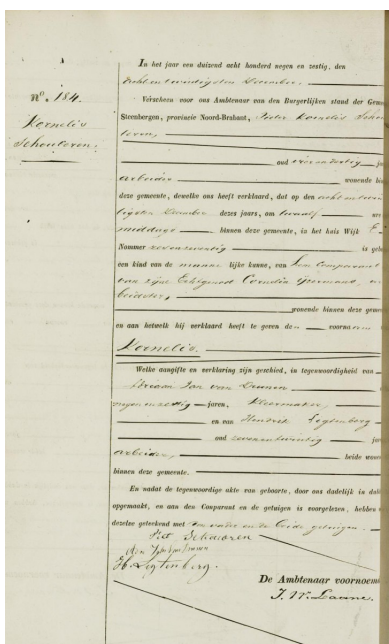 n°. 184.
Kornelis
Schouteren.
In het jaar een duizend acht honderd negen en zestig, den
acht en twintigsten December,
Verscheen voor ons Ambtenaar van den Burgerlijken stand der Gem
Steenbergen, provincie Noord-Brabant, Pieter Kornelis Schou
teren,
oud vierendertig ja
arbeider wonende bin
deze gemeente, dewelke ons heeft verklaard, dat op den acht en twin
tigsten December dezes jaars, om twaalf ure
middags binnen deze gemeente, in het huis Wijk E
Nummer zevenentwintig is gebo
een kind van de manne lijke kunne, van hem Comparant
van zijne Echtgenoot Cornelia
beidster, wonende binnen deze gemee
en aan hetwelk hij verklaard heeft te geven den voornaam
Kornelis.
Welke aangifte en verklaring zijn geschied, in tegenwoordigheid van
Adriaan Jan van Drunen
negenenzestig jaren, Kleermaker,
en van Hendrik Legtenberg
oud zevenentwintig jar
arbeider, beide wonen
binnen deze gemeente.
En nadat de tegenwoordige akte van geboorte, door ons dadelijk in dub
opgemaakt, en aan den Comparant en de getuigen is voorgelezen, hebben
dezelve geteekend met den vader en de beide getuigen.
Piet Schouteren
H. Legtenberg.
De Ambtenaar voornoemd
J. W. Laane.